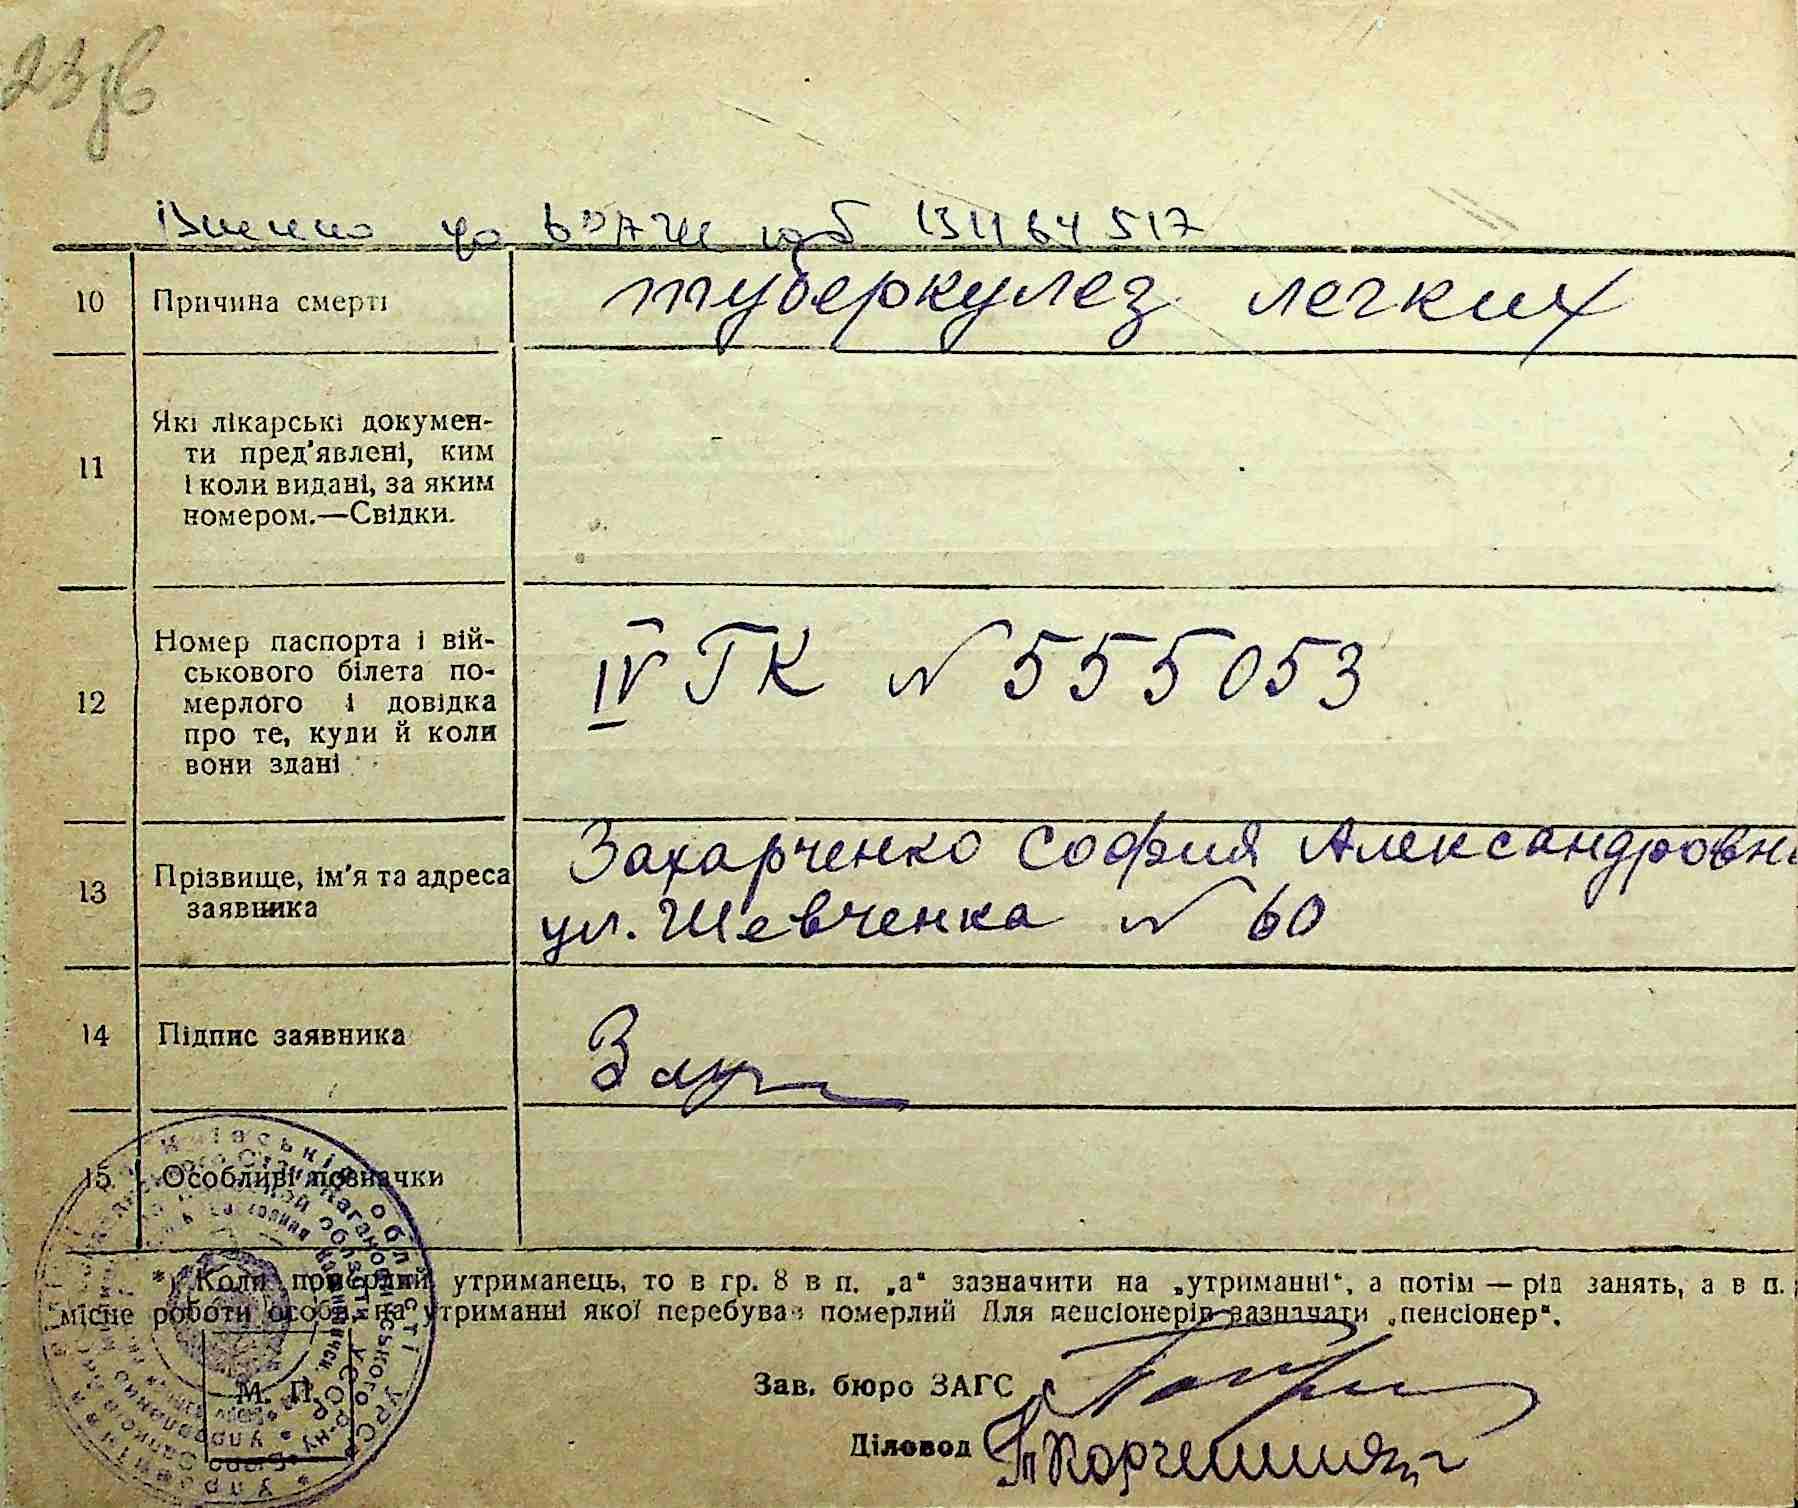 10 Причина смерті туберкулез легких
11 Які лікарські докумен-
ти пред'явлені, ким
і коли видані, за яким
номером.—Свідки.
12 Номер паспорта і вій-
ськового білета по-
мерлого і довідка
про те, куди й коли
вони здані
IV ГК № 555053
13 Прізвище, ім'я та адреса
заявника
Захарченко София Александровн
ул. Шевченка № 60
14 Підпис заявника
15 Особливі позначки
Коли померлий утриманець, то в гр. 8 в п. „а“ зазначити на „утриманні“, а потім — рід занять, а в п.
місце роботи особи на утриманні якої перебував померлий Для пенсіонерів зазначати „пенсіонер“.
Зав. бюро ЗАГС
М. П.
Діловод